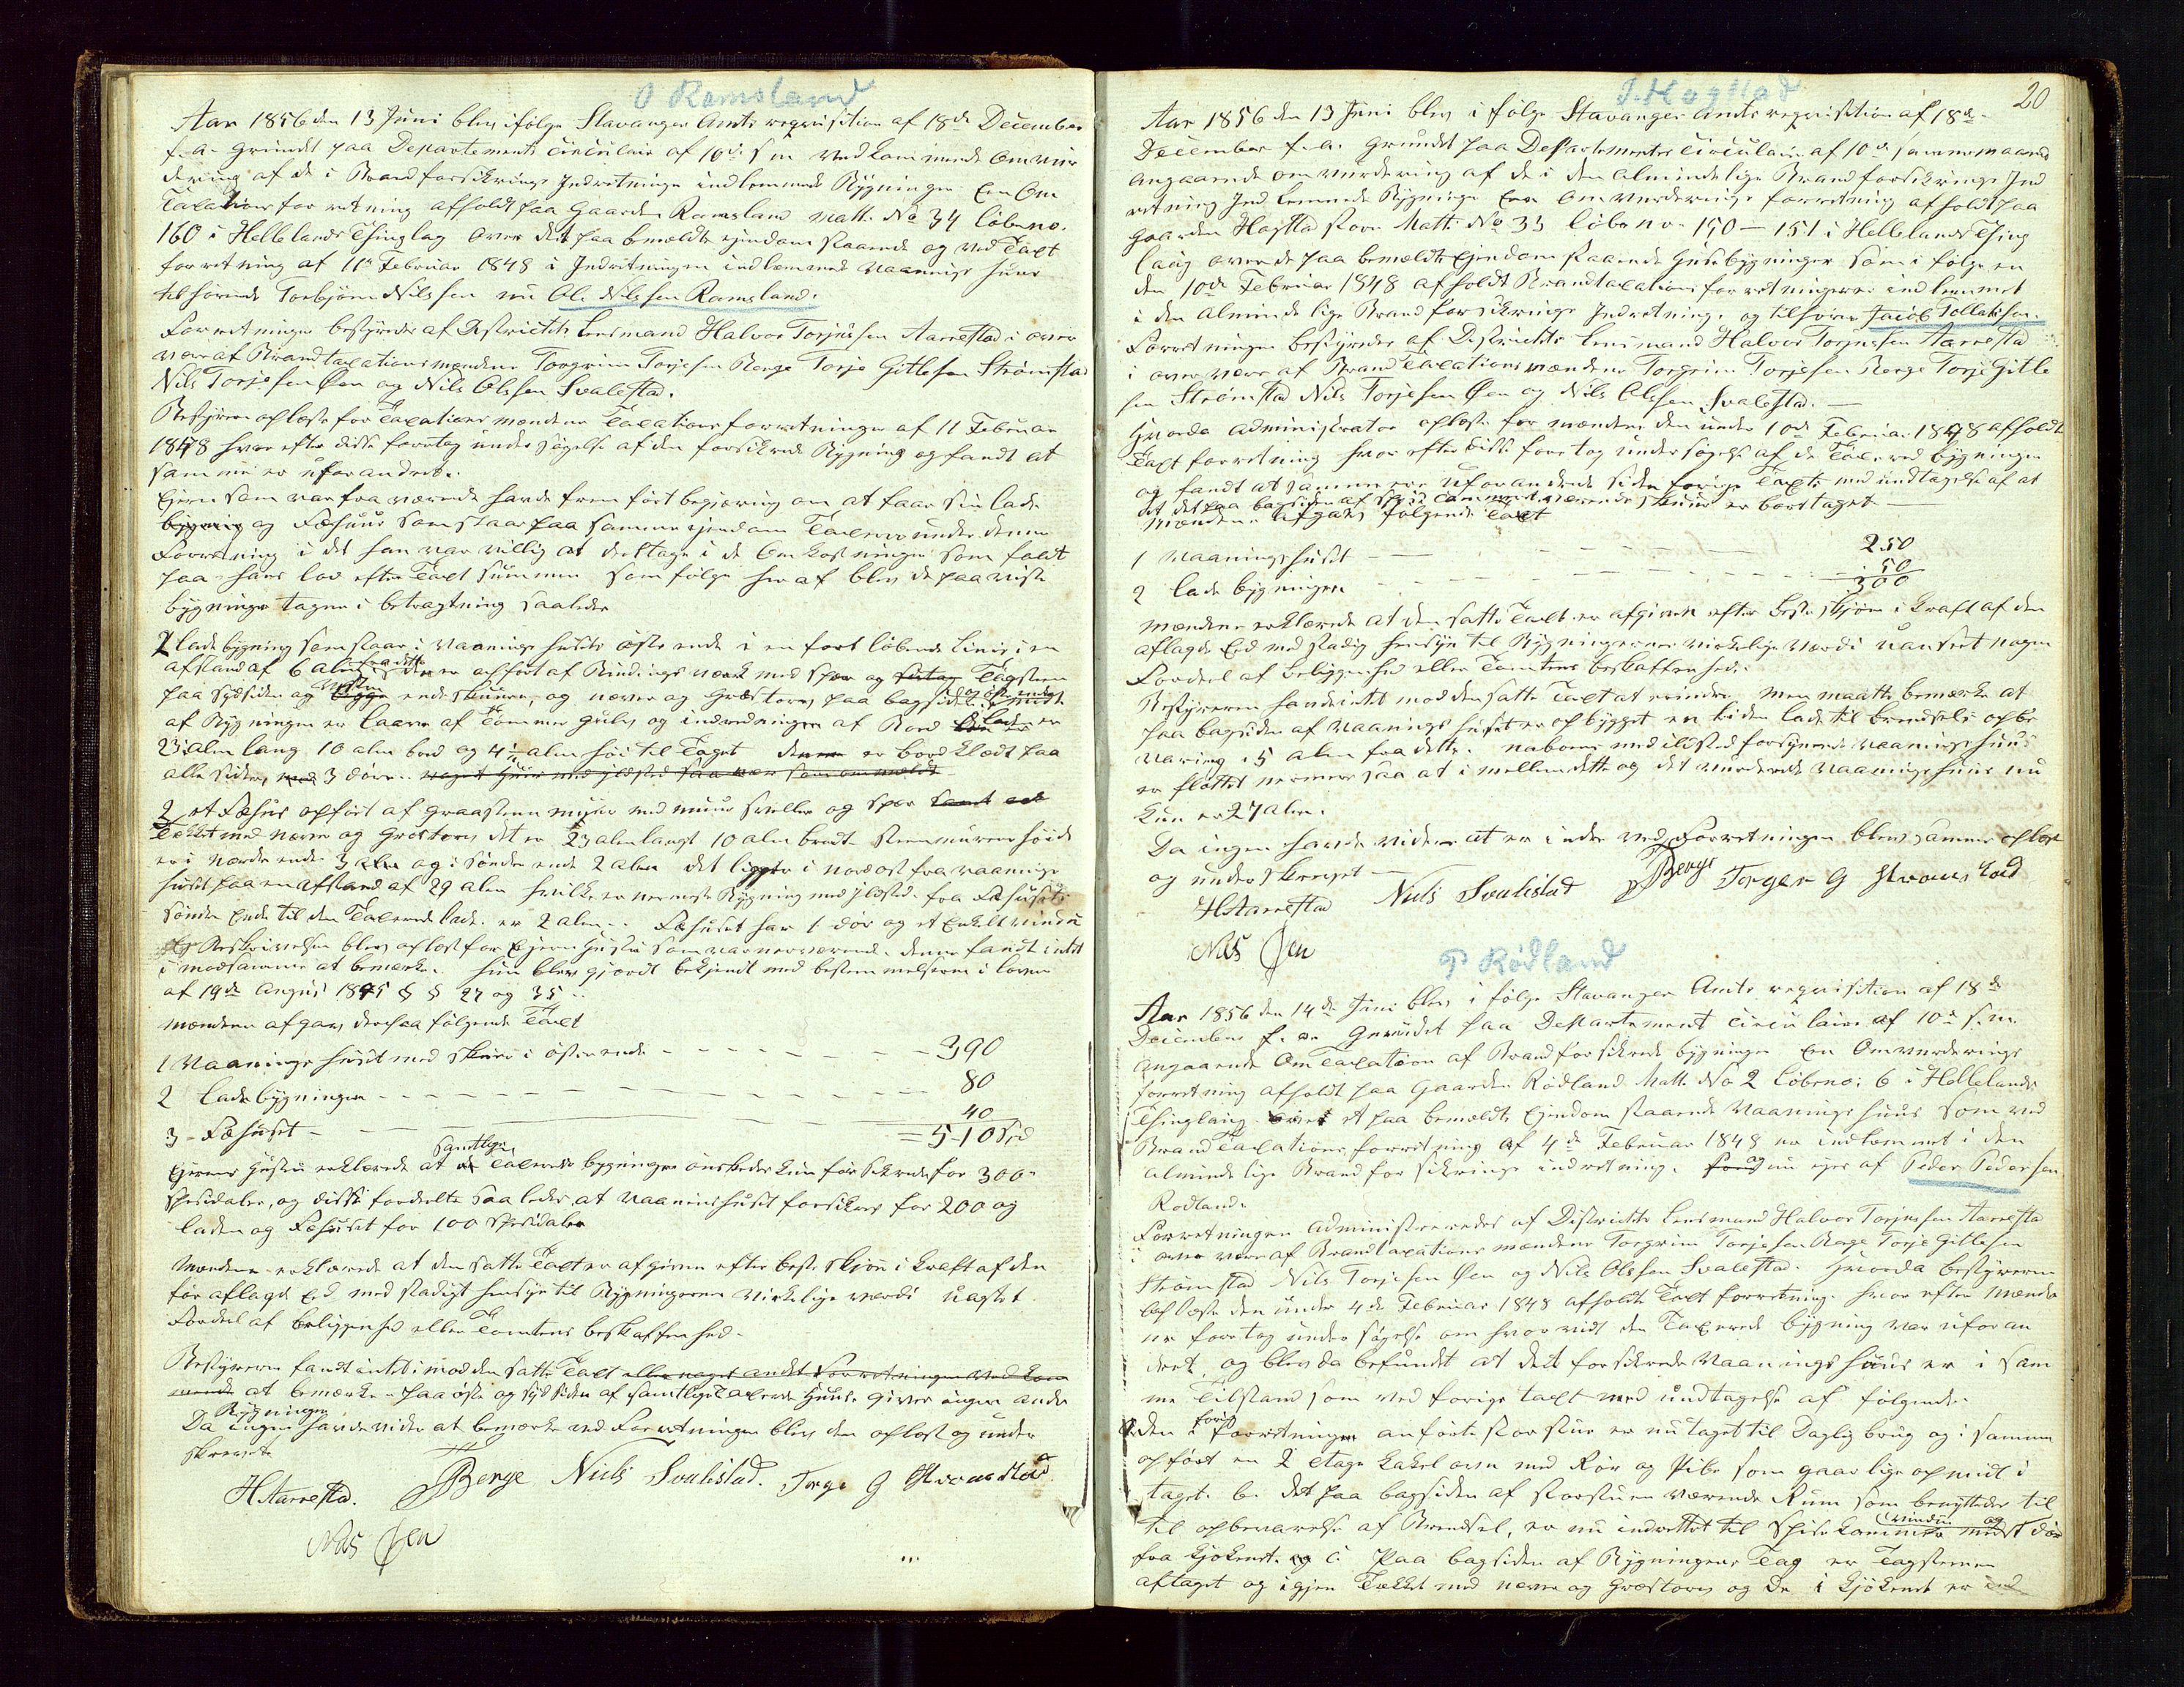 O Ramsland
Aar 1856 den 13 Juni blev ifølge Stavanger Amts reqvisition af 18de December
f. a. grundet paa Departements Circulaire af 10de s m vedkommende Omvur
dering af de i Brandforsikrings Indretningen indlemmede Bygninger En Om
Taxations forretning afholdt paa Gaarden Ramsland Matt. No 34 löbeno.
160 i Hellelands Thinglag over det paa bemældte ejendom staaende og ved Taxt
forretning af 11te Februar 1848 i Indretningen indlemmed Vaanings huus
tilhørende Torbjørn Nilssen nu Ole Nilssen Ramsland.
Forretningen bestyredes af Districtets Lensmand Halvor Torjussen Aarrestad i over
vær af Brandtaxationsmændene Torgrim Torjesen Berge Torje Gitlesen Strømstad
Nils Torjesen Øen og Nils Olssen Svalestad.
Bestyreren oplæste for Taxations mændene Taxationsforretningen af 11 Februar
1848 hvorefter disse foretog undersögelse af den forsikrede Bygning og fandt at
samme er uforandret.
Ejeren som var fraværende havde fremført begjæring om at faae sin lade
bygning og Fæhuus som staar paa samme ejendom Taxeres under denne
Forretning i det han var villig at deeltage i de Omkostninger som faldt
paa hans lod efter Taxt summen som følge heraf blev de paaviste
bygninger tagne i betragtning saaledes
1 ladebygning som staar i Vaanings husets øste ende i en fort løbende Linie i en
afstand af 6 alen fra dette den er opført af Bindings værk med spær og Tagsteen
paa sydsiden og vestre ende skuure, og næver og Græstorv paa bagsiden og øste ende
af Bygningen er laave af Tømmer gulv og indredningen af Bord Laden er
23 alen lang 10 alen bred og 4½ alen høi til Taget den er bord klædt paa
alle sider, 3 döre.
2 et Fæhus opført af Graasteens muur med muur sveller og spær
Tækket med næver og Græstorv det er 23 alen langt 10 alen bredt steenmurens høide
er i nordre ende 3 alen og i søndre ende 2 alen det ligger i nordost fra vaanings
huset paa en afstand af 29 alen hvilke er nermeste Bygning med ildsted. fra Fæhusets
söndre Ende til den Taxerede lade er 2 alen. Fæhuset har 1 dør og et Enkelt vindue
Beskrivelsen blev oplæst for Ejerens Hustru som var nærværende. denne fandt intet
imod samme at bemærke. hun blev gjordt bekjendt med bestemmelserne i loven
af 19de August 1845 § § 27 og 35.
Mændene afgav derpaa følgende Taxt
1 Vaanings huset med skuur i østerende - - - - - - - - 390
2 ladebygningen - - - - - - - - - - 80
3 Fæhuset - - - - - - - - 40
= 510 Spd
Ejerens Hustru erklærede at samtlige Taxerede bygninger ønskedes kun forsikrede for 300
Speciedaler, og disse fordeelte saaledes, at Vaaningshuset forsikres for 200 og
laden og Fæhuset for 100 Speciedaler
Mændene erklærede at den satte Taxt er afgiven efter beste skjøn i kraft af den
før aflagde Eed med stadigt hensyn til Bygningernes virkelige værdi uagtet
Fordeel af beliggenhed eller Tomtens beskaffenhed.
Bestyreren fandt intet imod den satte Taxt eller noget andet Forretningen vedkom
mende at bemærke. Paa øste og syd siden af samtlige Taxerede Huuse gives ingen andre
Bygninger
Da ingen havde videre at bemærke ved Forretningen blev den oplæst og under
skrevet
H Aarrestad. TBerge Niels Svalestad. Torge G Strømstad
Nils Øen
20
J. Hogstad
Aar 1856 den 13 Juni blev i følge Stavanger Amts reqvisition af 18de
December f. a. grundet paa Departementes Circulaire af 10de samme maaned
angaaende omvurdering af de i den almindelige Brandforsikrings Ind
retning Indlemmede Bygninger En Omvurderings forretning afholdt paa
Gaarden Hogstad store Matt No 33 löbeno. 150 - 151 i Hellelands Thing
laug over de paa bemældte Ejendom staaende Huusebygninger som i følge en
den 10de Februar 1848 afholdt Brandtaxations forretning er indlemmet
i den Almindelige Brandforsikrings Indretning. og tilhører Jacob Tollaksen.
Forretningen bestyredes af Districtets Lensmand Halvor Torjussen Aarrestad
i overvær af Brand Taxations mændene Torgrim Torjesen Berge Torje Gitle
sen Strømstad Nils Torjesen Øen og Nils Olssen Svalestad.
Hvorda Administrator oplæste for mændene den under 10de Februar 1848 afholdt
Taxt forretning hvorefter disse foretog undersögelse af de Taxerede bygninger
og fandt at samme er uforandrede siden forige Taxt med undtagelse af at
det paa bagsiden af værende skuur er borttaget
Mændene afgav følgende Taxt
1 Vaaningshuset - - - - - - 250
2 ladebygningen - - - - - - 50
300
Mændene erklærede at den satte Taxt er afgiven efter beste skjøn i kraft af den
aflagde Eed med stadig hensyn til Bygningernes virkelige værdi uanseet nogen
Fordeel af beliggenhed eller Tomtens beskaffenhed.
Bestyreren havde intet mod den satte Taxt at erindre, men maatte bemærke at
paa bagsiden af vaanings huset er opbygget en liden lade til brendsels opbe
varing i 5 alen fra dette. naboens med ildsted forsynede vaaningshuus
er flyttet nermere saa at imellem dette og det vurderede Vaaningshuus nu
kun er 27 alen.
Da ingen havde videre at erindre ved Forretningen blev samme oplæst
og underskrevet
H Aarrestad Niels Svalestad TBerge Torger G Strømstad
Nils Øen
P Rødland
Aar 1856 den 14de Juni blev i følge Stavanger Amts reqvisition af 18de
December f. a. Grundet paa Departement Circulaire af 10de s. m.
angaaende OmTaxation af Brandforsikrede bygninger En Omvurderings
forretning afholdt paa Gaarden Rødland Matt No 2 löbeno: 6 i Hellelands
Thinglaug over et paa bemældte Ejendom staaende Vaanings huus som ved
Brand Taxations forretning af 4de Februar 1848 er indlemmet i den
almindelige Brandforsikrings indretning. og nu ejes af Peder Pedersen
Rødland.
Forretningen Administreredes af Districtets Lensmand Halvor Torjussen Aarresta
i overvær af Brandtaxations mændene Torgrim Torjesen Berge Torje Gitlesen
Strømstad Nils Torjesen Øen og Nils Olssen Svalestad. Hvorda bestyreren
oplæste den under 4de Februar 1848 afholdte Taxt forretning. hvorefter Mænde
ne foretog undersögelse om hvorvidt den Taxerede bygning var uforan
dret, og blev da befundet at det forsikrede Vaaningshuus er i sam
me Tilstand som ved forige taxt med undtagelse af følgende.
a den i forige forretningen anførte storstue er nu taget til Daglig brug og i samme
opført en 2 etage kakelovn med Rør og Pibe som gaar lige op midt i
taget. b. det paa bagsiden af storstuen værende Rum som benyttedes til
til opbevarelse af Brendsel, er nu indrettet til spisekammer vindue og dør
fra kjøkenet. og c. Paa bagsiden af Bygningens Tag er Tagstenene
aftaget og igjen Tækket med næver og Græstorv og de i kjøkenet er